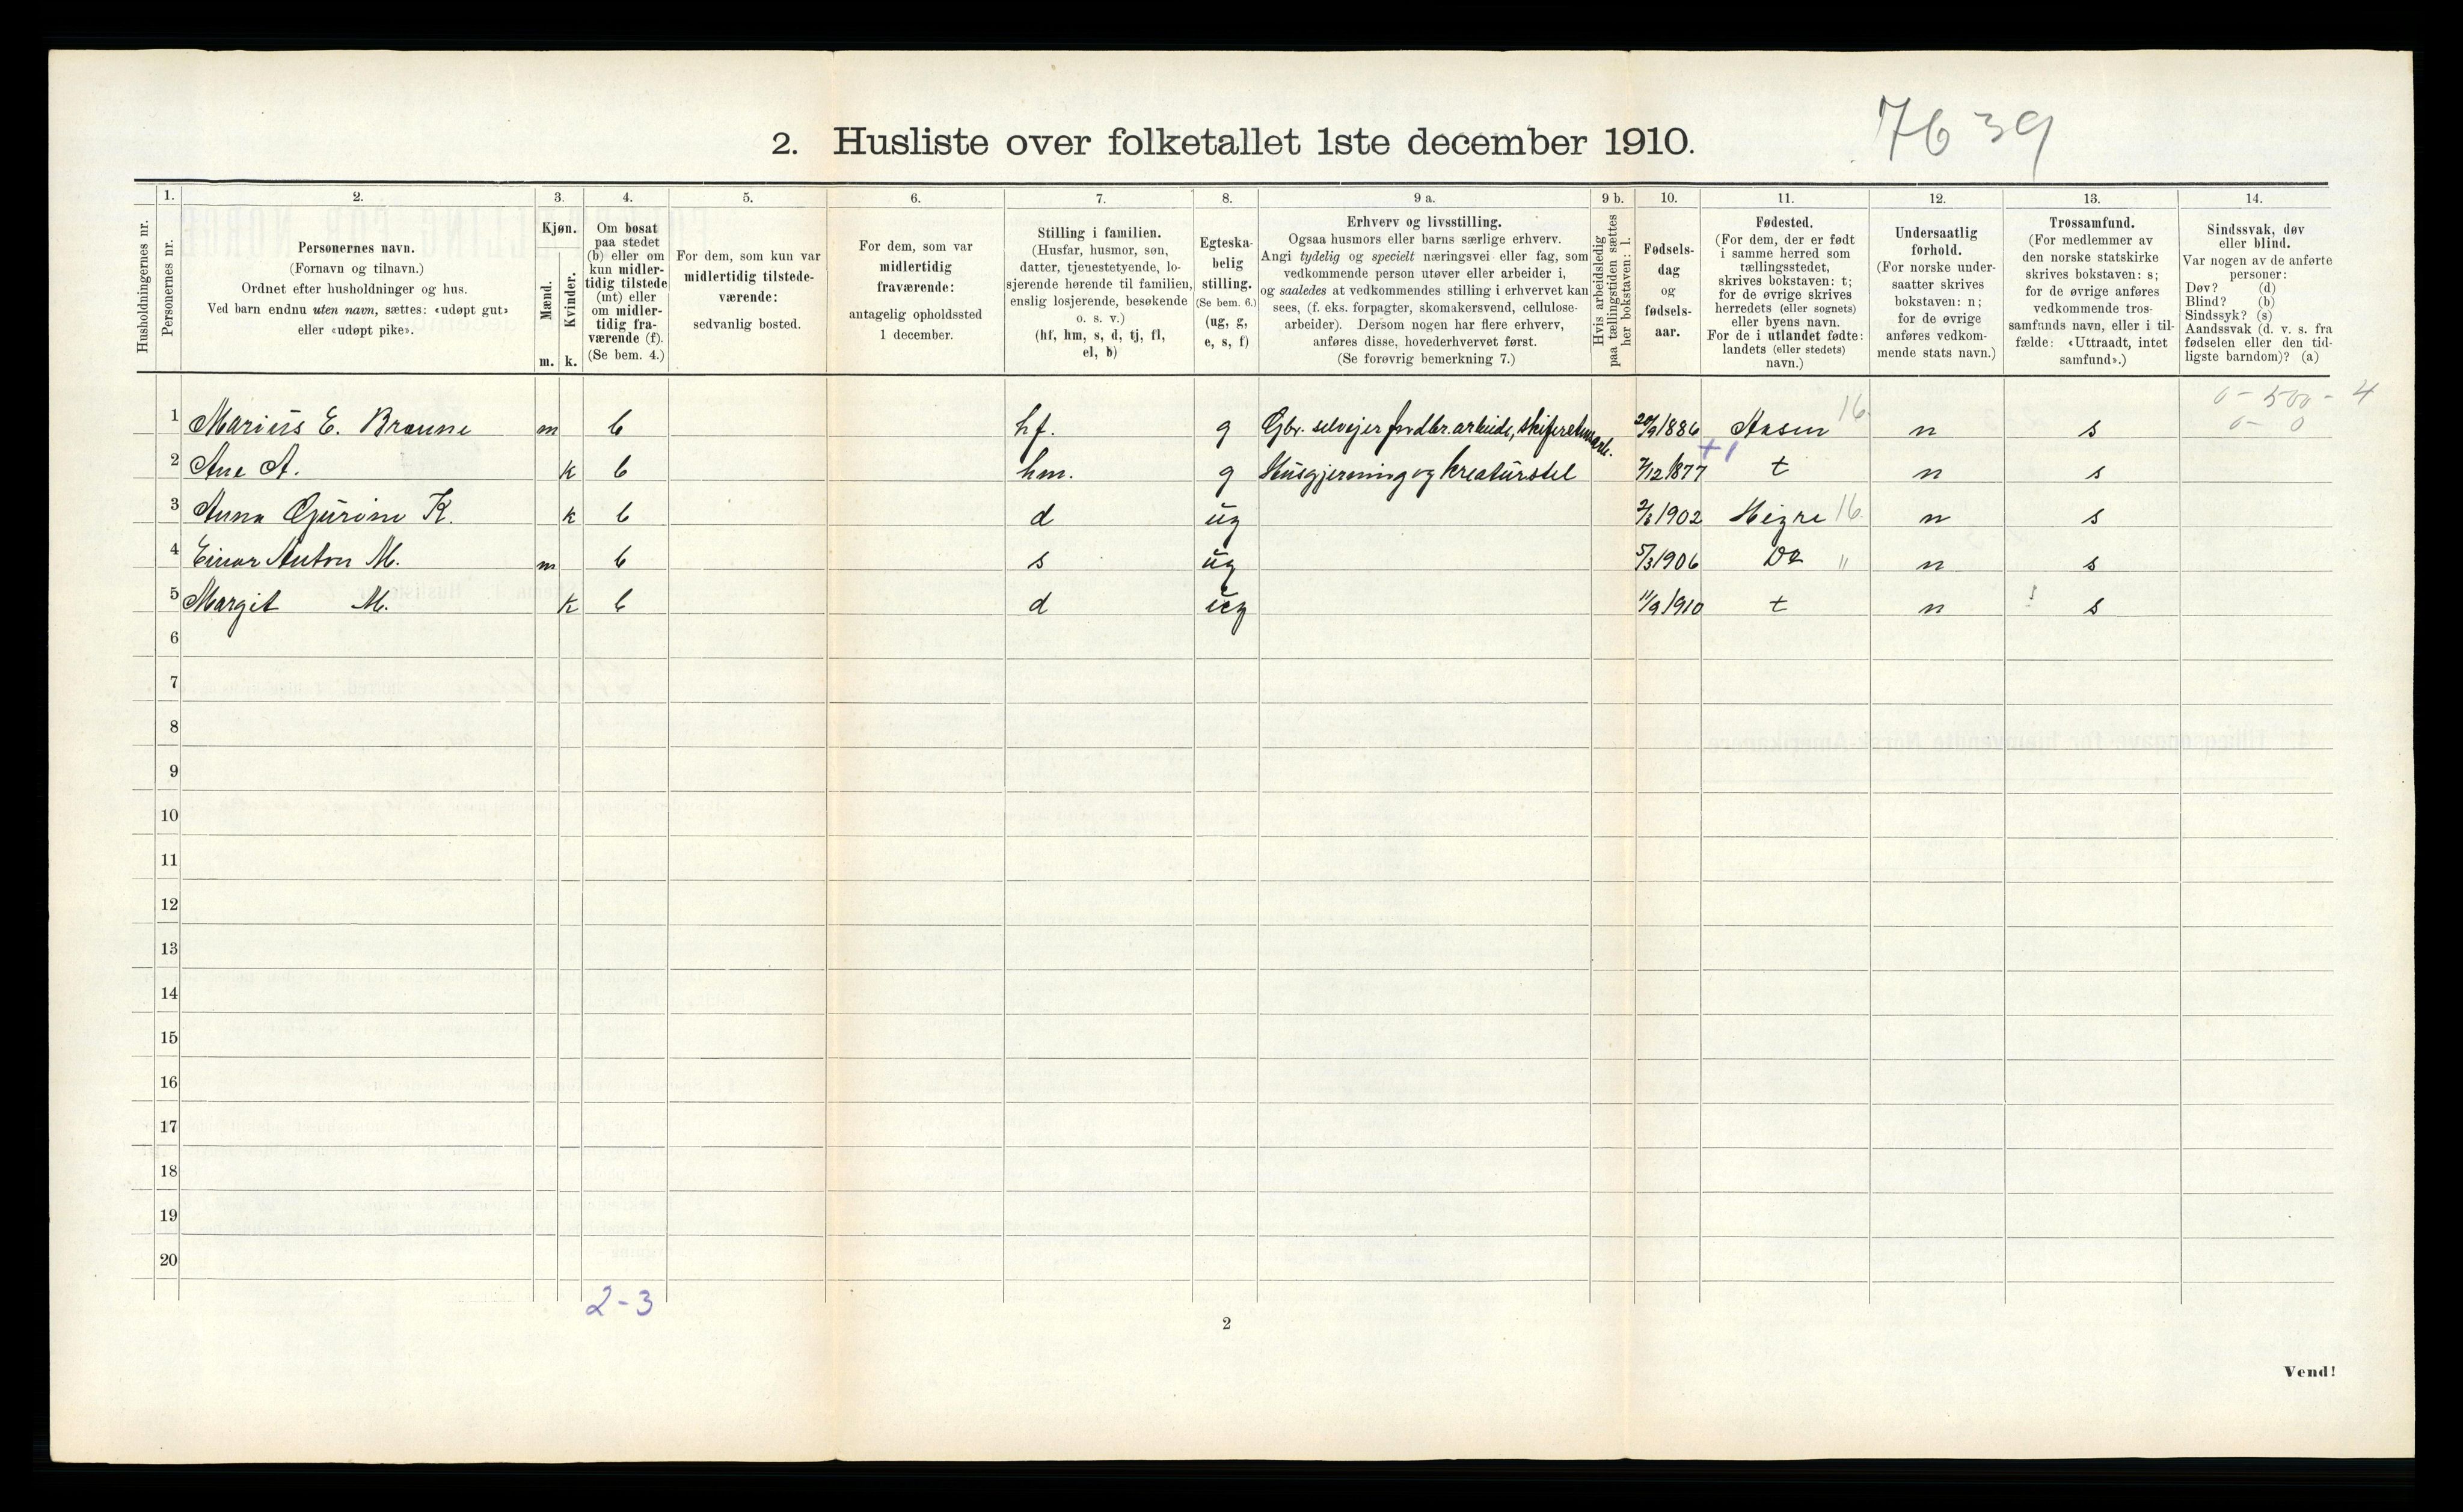 7639
2. Husliste over folketallet 1ste december 1910.
Husholdningernes nr.
1.
Personernes nr.
2.
Personernes navn.
(Fornavn og tilnavn.)
Ordnet efter husholdninger og hus.
Ved barn endnu uten navn, sættes: «udøpt gut»
eller «udøpt pike».
3.
Kjøn.
Mænd.
Kvinder.
m. k.
4.
Om bosat
paa stedet
(b) eller om
kun midler-
tidig tilstede
(mt) eller
om midler-
tidig fra-
værende (f).
(Se bem. 4.)
5.
For dem, som kun var
midlertidig tilstede-
værende:
sedvanlig bosted.
6.
For dem, som var
midlertidig
fraværende:
antagelig opholdssted
1 december.
7.
Stilling i familien.
(Husfar, husmor, søn,
datter, tjenestetyende, lo-
sjerende hørende til familien,
enslig losjerende, besøkende
o. s. v.)
(hf, hm, s, d, tj, fl,
el, b)
8.
Egteska-
belig
stilling.
(Se bem. 6.)
(ug, g,
e, s, f)
9 a.
Erhverv og livsstilling.
Ogsaa husmors eller barns særlige erhverv.
Angi tydelig og specielt næringsvei eller fag, som
vedkommende person utøver eller arbeider i,
og saaledes at vedkommendes stilling i erhvervet kan
sees, (f. eks. forpagter, skomakersvend, cellulose-
arbeider). Dersom nogen har flere erhverv,
anføres disse, hovederhvervet først.
(Se forøvrig bemerkning 7.)
9 b.
Hvis arbeidsledig
paa tællingstiden sættes
her bokstaven: l.
10.
Fødsels-
dag
og
fødsels-
aar.
11.
Fødested.
(For dem, der er født
i samme herred som
tællingsstedet,
skrives bokstaven: t;
for de øvrige skrives
herredets (eller sognets)
eller byens navn.
For de i utlandet fødte:
landets (eller stedets)
navn.)
12.
Undersaatlig
forhold.
(For norske under-
saatter skrives
bokstaven: n;
for de øvrige
anføres vedkom-
mende stats navn.)
13.
Trossamfund.
(For medlemmer av
den norske statskirke
skrives bokstaven: s;
for de øvrige anføres
vedkommende tros-
samfunds navn, eller i til-
fælde: «Uttraadt, intet
samfund».)
14.
Sindssvak, døv
eller blind.
Var nogen av de anførte
personer:
Døv? (d)
Blind? (b)
Sindssyk? (s)
Aandssvak (d. v. s. fra
fødselen eller den tid-
ligste barndom)? (a)
0 - 500 - 4
1 Marius E. Braune m b hf. g Gbr. selveier jordbr. arbeide, 20/9 1886 Aasen 16 n s 0 - 0
+1
2 Ane A. k b hm. g Husgjerning og kreaturstel 7/12 1877 t n s
3 Anna Gurine K. k b d ug 1902 Hegre 16 n s
4 Einar Anton M. m b s ug 5/3 1906 Do " n s
5 Margit M. k b d ug 11/9 1910 t n s
6
7
8
9
10
11
12
13
14
15
16
17
18
19
20
2-3
2
Vend!